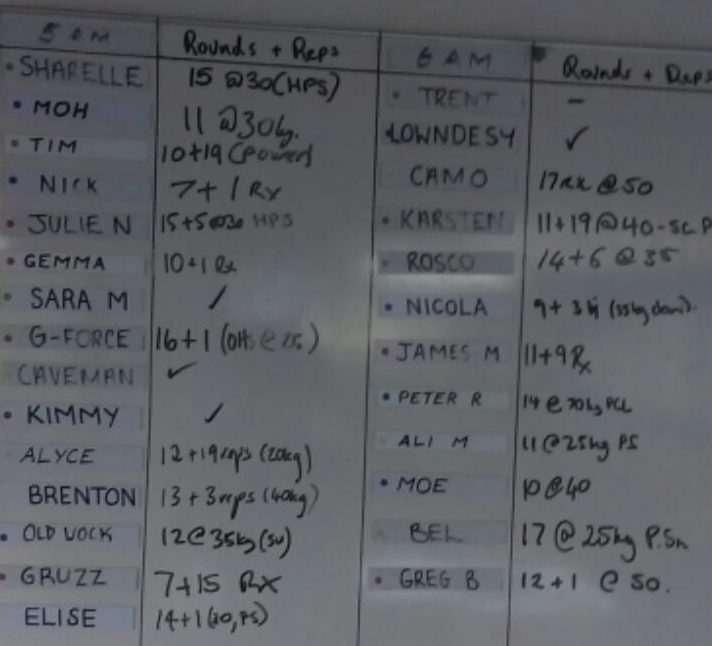 5 AM Rounds + Reps
SHARELLE 15 @30(HPS)
MOH 11 @30kg.
TIM 10+19 (power)
NICK 7+1 Rx
JULIE N 15+5@30 HPS
GEMMA 10+1 Rx
SARA M /
G-FORCE 16+1 (OHS @ 25)
CAVEMAN ✓
KIMMY /
ALYCE 12+19reps (20kg)
BRENTON 13+3reps (40kg)
OLD VOCK 12@35kg(su)
GRUZZ 7+15 RX
ELISE 14+1(20,PS)
6 AM Rounds + Reps
TRENT -
LOWNDESY ✓
CAMO 17RX @50
KARSTEN 11+19@40-sc.P
ROSCO 14+6 @35
NICOLA 9+3
JAMES M 11+9 Rx
PETER R 14@70kg PCL
ALI M 11@25kg PS
MOE 10@40
BEL 17@25kg P.Sn
GREG B 12+1 @50.